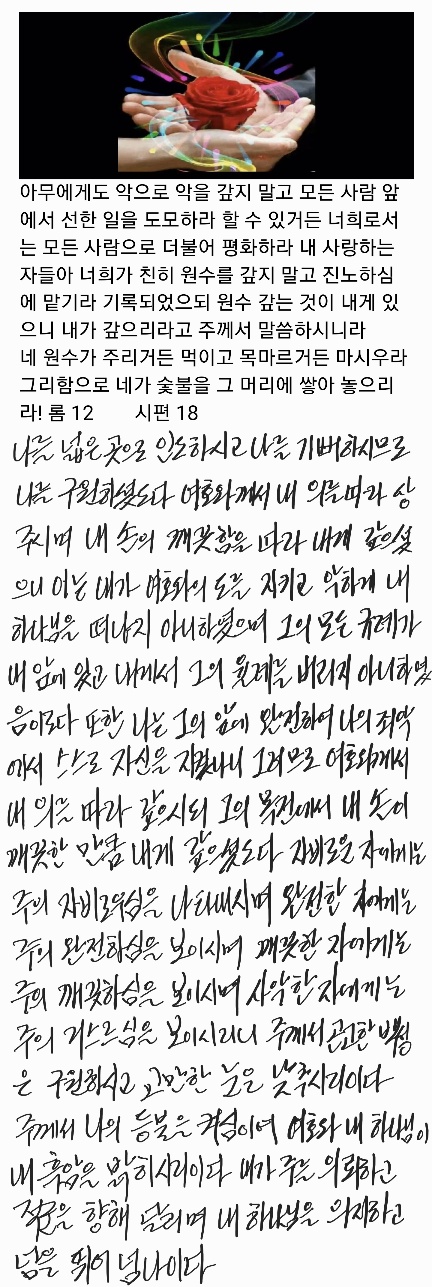 아무에게도 악으로 악을 갚지 말고 모든 사람 앞
에서 선한 일을 도모하라 할 수 있거든 너희로서
는 모든 사람으로 더불어 평화하라 내 사랑하는
자들아 너희가 친히 원수를 갚지 말고 진노하심
에 맡기라 기록되었으되 원수 갚는 것이 내게 있
으니 내가 갚으리라고 주께서 말씀하시니라
네 원수가 주리거든 먹이고 목마르거든 마시우라
그리함으로 네가 숯불을 그 머리에 쌓아 놓으리
라! 롬 12 시편 18
나를 넓은 곳으로 인도하시고 나를 기뻐하시므로
나를 구원하셨도다 여호와께서 내 의를 따라 상
주시며 내 손의 깨끗함을 따라 내게 갚으셨
으니 이는 내가 여호와의 도를 지키고 악하게 내
하나님을 떠나지 아니하였으며 그의 모든 규례가
내 앞에 있고 내게서 그의 율례를 버리지 아니하였
음이로다 또한 나는 그의 앞에 완전하여 나의 죄악
에서 스스로 자신을 지켰나니 그러므로 여호와께서
내 의를 따라 갚으시되 그의 목전에서 내 손이
깨끗한 만큼 내게 갚으셨도다 자비로운 자에게는
주의 자비로우심을 나타내시며 완전한 자에게는
주의 완전하심을 보이시며 깨끗한 자에게는
주의 깨끗하심을 보이시며 사악한 자에게는
주의 거스르심을 보이시리니 주께서 곤고한 백성
은 구원하시고 교만한 눈은 낮추시리이다
주께서 나의 등불을 켜심이여 여호와 내 하나님이
내 흑암을 밝히시리이다 내가 주를 의뢰하고
적군을 향해 달리며 내 하나님을 의지하고
담을 뛰어 넘나이다